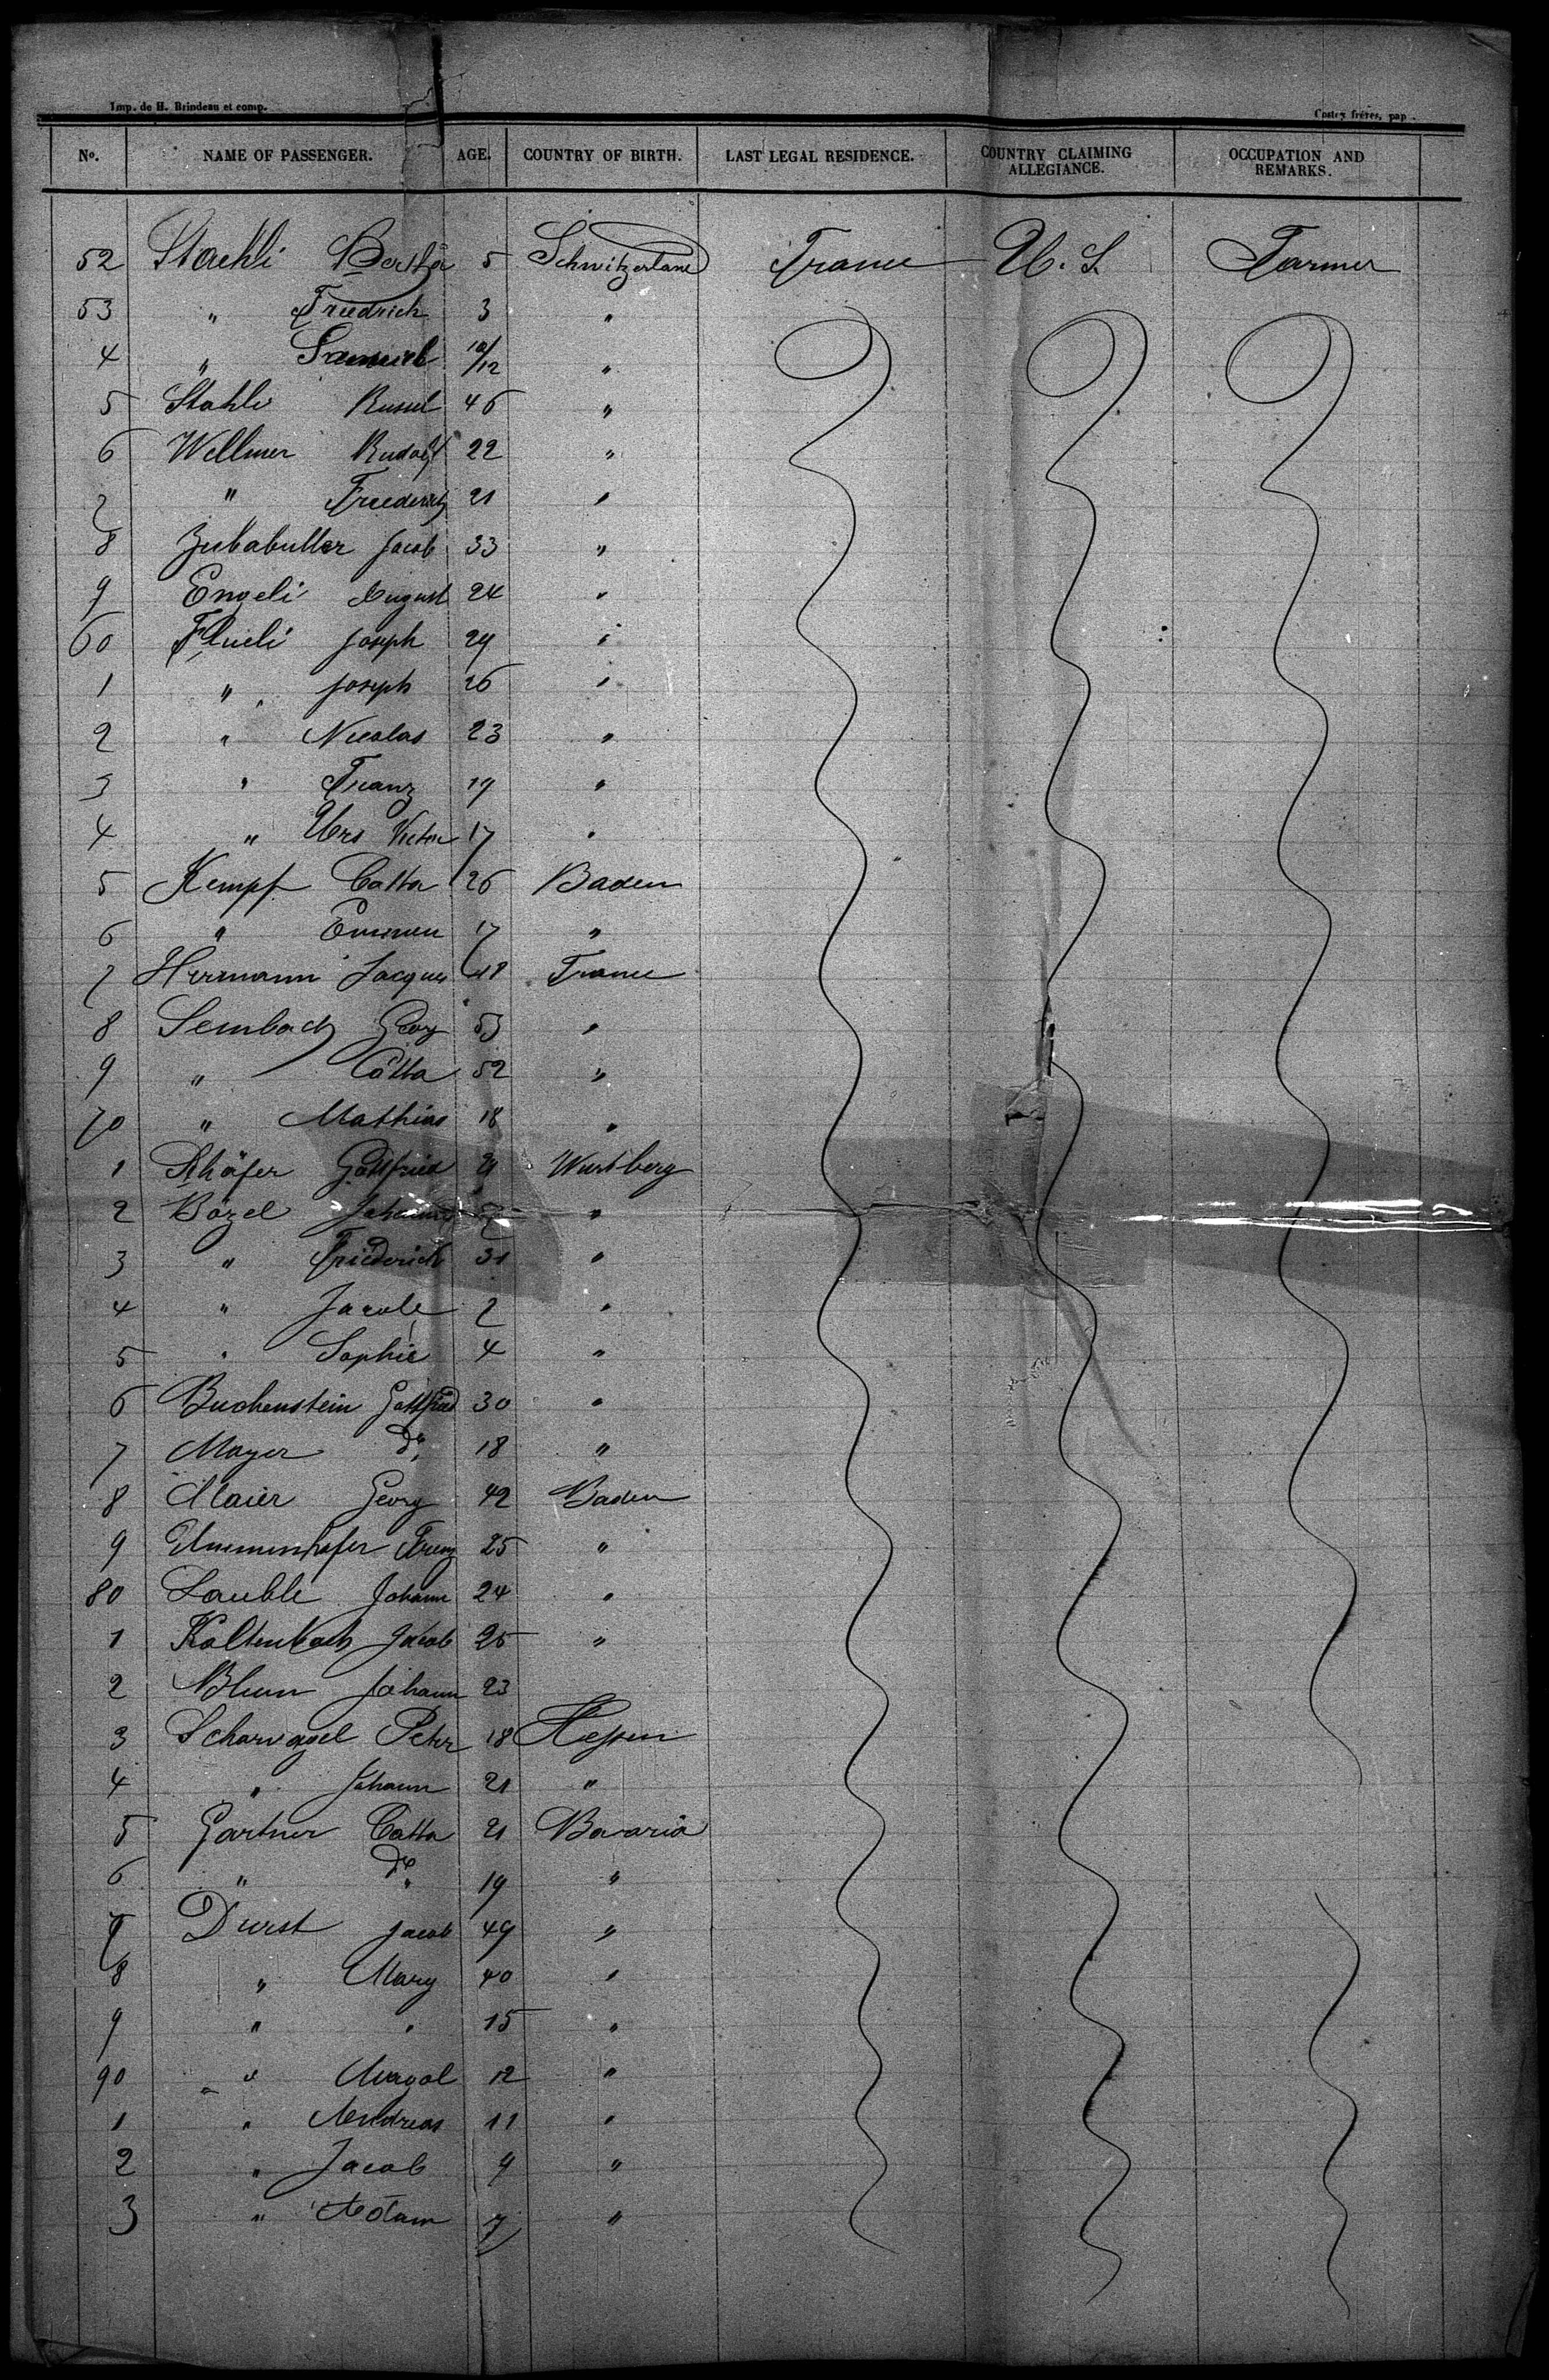 Imp. de H. Brindeau et comp.
Costey frères, pap.
No. NAME OF PASSENGER. AGE. COUNTRY OF BIRTH. LAST LEGAL RESIDENCE. COUNTRY CLAIMING ALLEGIANCE. OCCUPATION AND REMARKS.
52 Staehli Bertha 5 Schwitzerland France U. S. Farmer
53 " Friedrich 3 "
4 " Samuel 10/12 "
5 Stahli 46 "
6 Wellmer Rudolf 22 "
7 " Friederich 21 "
8 Jacob 33 "
9 Engeli August 24 "
60 Flueli Joseph 29 "
1 " Joseph 26 "
2 " Nicolas 23 "
3 " Franz 19 "
4 " Urs Victor 17 "
5 Kempf Catha 26 Baden
6 " 17 "
7 Herrmann Jacques 48 France
8 Sembach Georg 53 "
9 " Catha 52 "
70 " Mathias 18 "
1 Schäfer Gottfried 21 Wurtberg
2 Bözel "
3 " Friederich 31 "
4 " Jacob 2 "
5 " Sophie 4 "
6 Buchenstein Gottfried 30 "
7 Mayer Do 18 "
8 Maier Georg 42 Baden
9 Franz 25 "
80 Lauble Johann 24 "
1 Kaltenbach Jacob 25 "
2 Blum Johann 23
3 Scharvogel Peter 18 Hessen
4 " Johann 21 "
5 Gartner Catha 21 Bavaria
6 " Do 19 "
7 Durst Jacob 49 "
8 " Mary 40 "
9 " " 15 "
90 " 12 "
1 " Andreas 11 "
2 " Jacob 9 "
3 " Adam 7 "